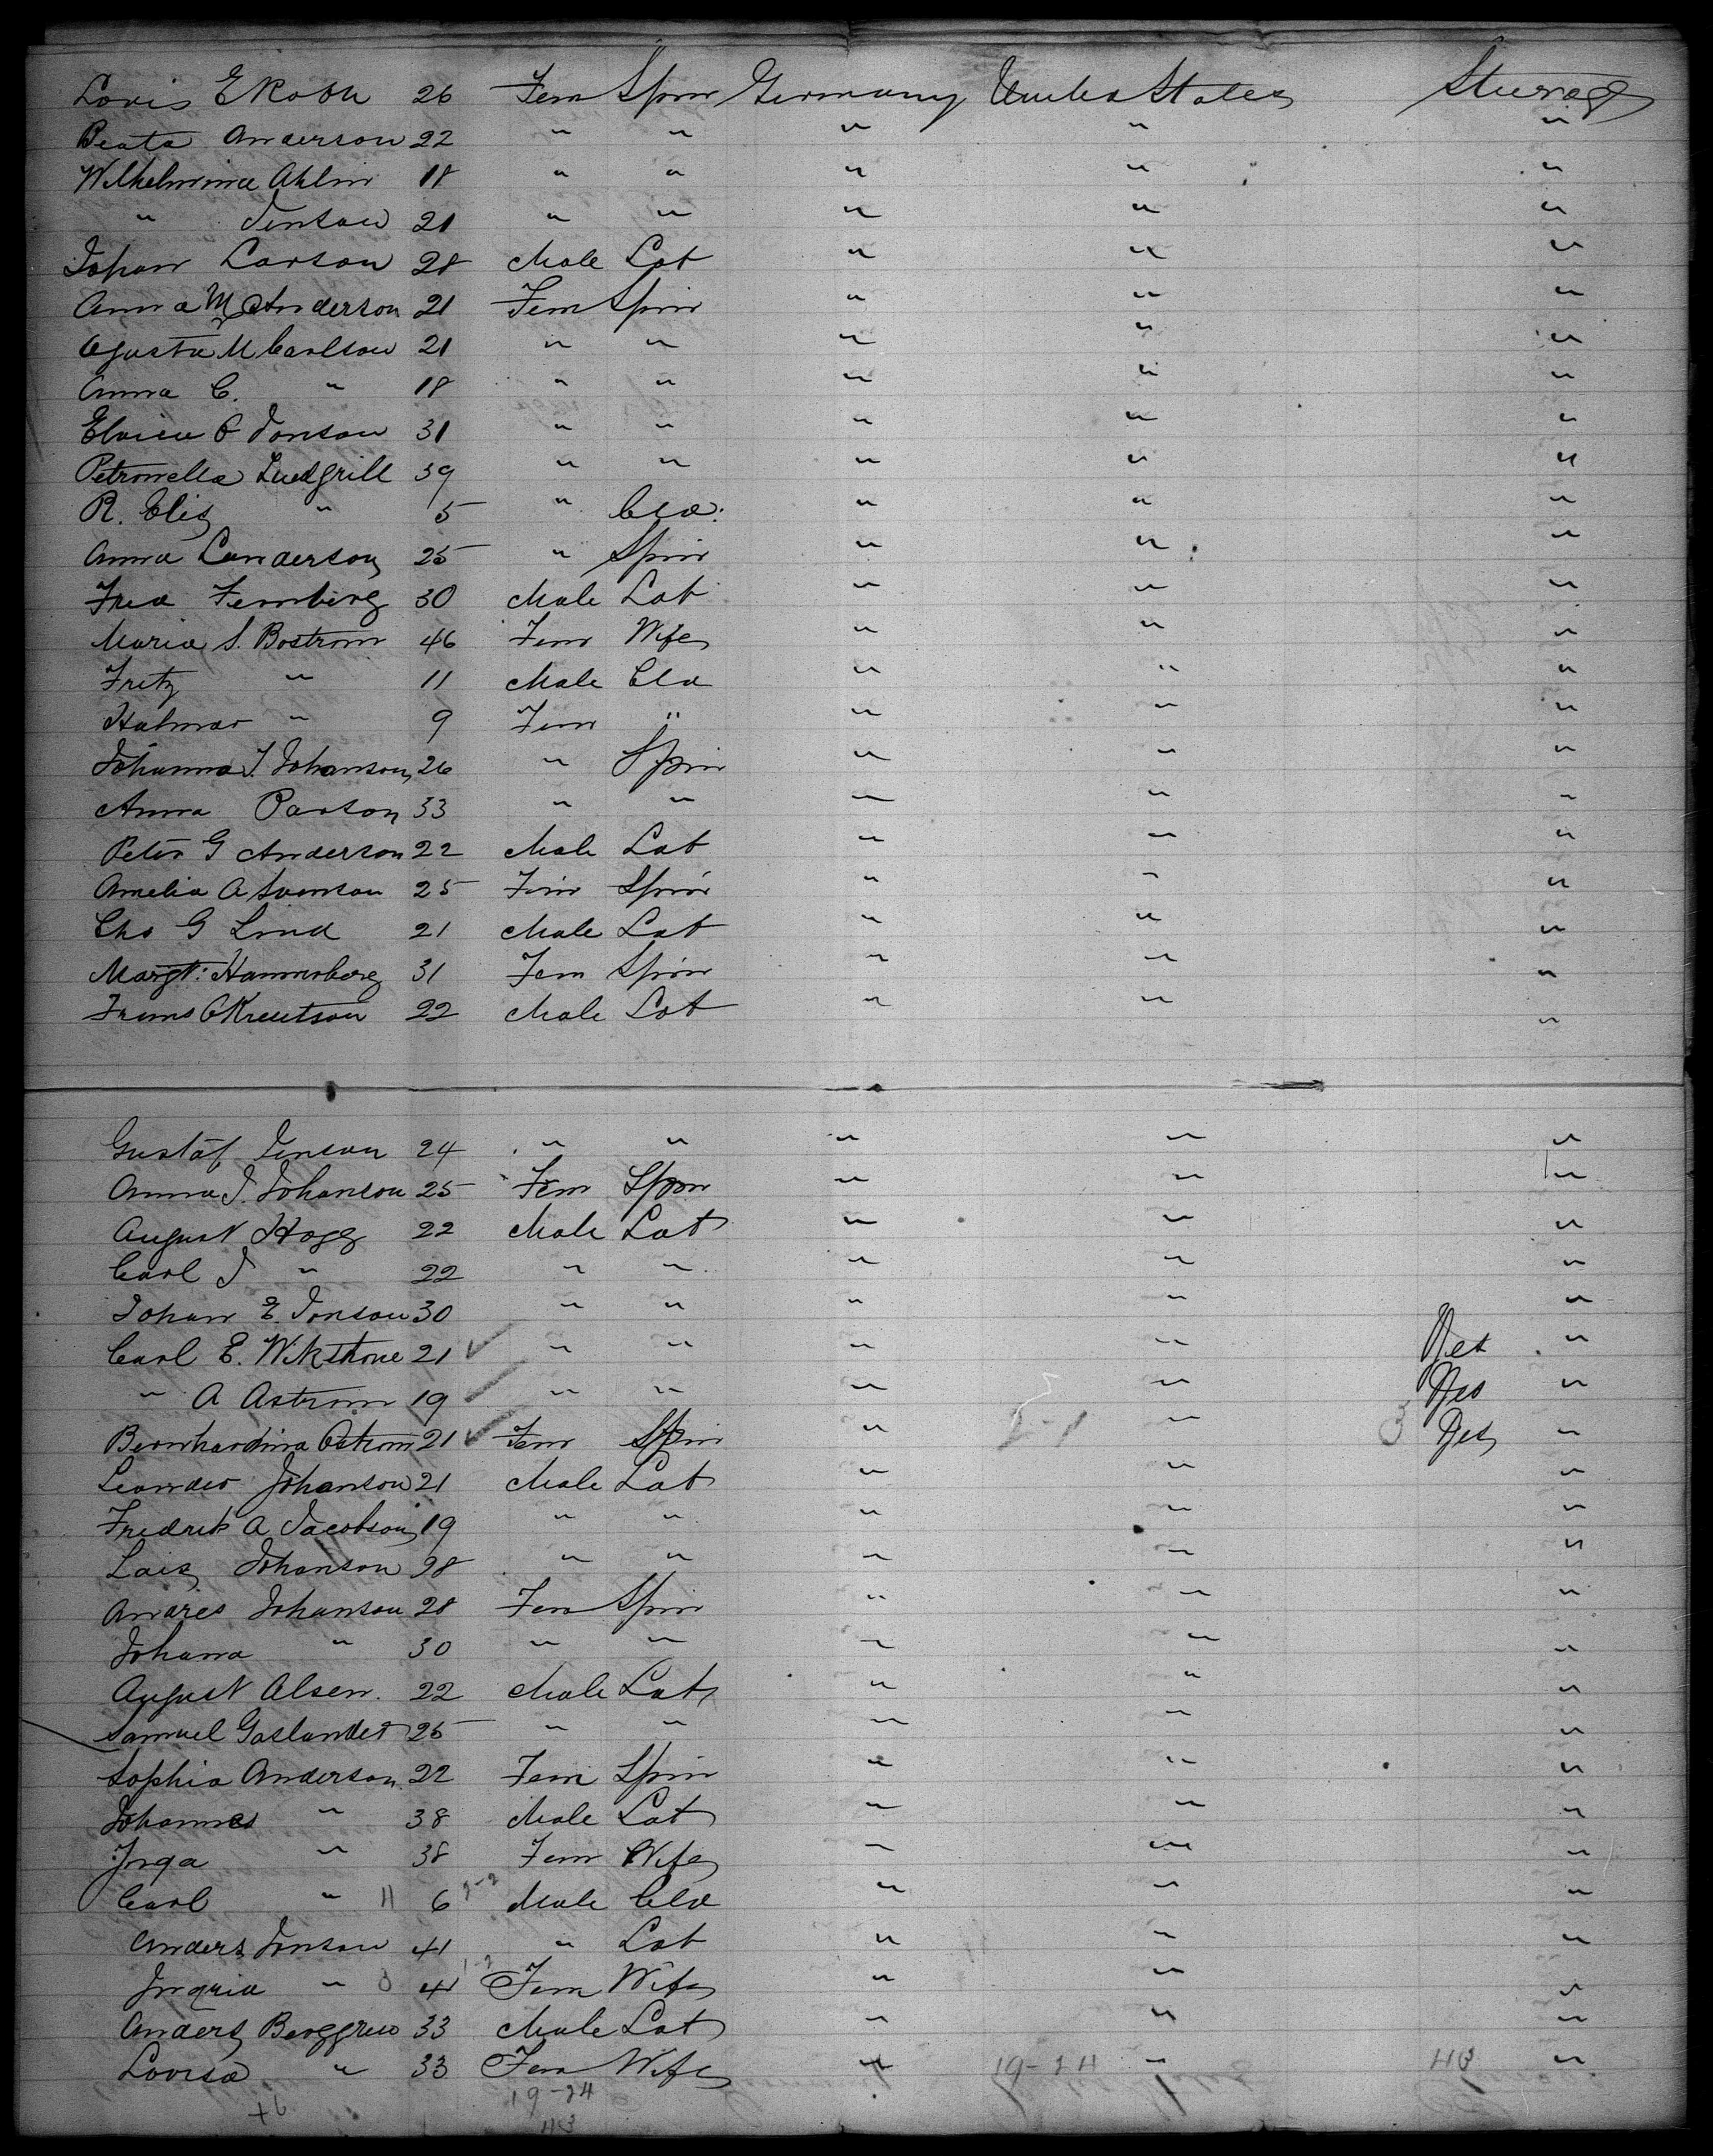 Lovis Ekobn 26 Fem Spin Germany United States Steerage
Beata Anderson 22 " " " " "
Wilhelmina Ahlin 18 " " " " "
" Jenson 21 " " " " "
Johan Larson 28 Male Lab " " "
Anna M Anderson 21 Fem Spin " " "
Agusta M Carlson 21 " " " " "
Anna C. " 18 " " " " "
Jonson 31 " " " " "
Petronella 39 " " " " "
R. Elis " 5 " Cld: " " "
Anna Landerson 25 " Spin " " "
Fred Fernberg 30 Male Lab " " "
Maria S. Bostrom 46 Fem Wife " " "
Fritz " 11 Male Cld " " "
Halmar " 9 Fem " " " "
Johanna J. Johanson 26 " Spin " " "
Anna Parson 33 " " " " "
Peter G Anderson 22 Male Lab " " "
Amelia A Svenson 25 Fem Spin " " "
Chs G Lind 21 Male Lab " " "
Margt: Hammerberg 31 Fem Spin " " "
Frans O Kreutson 22 Male Lab " " "
Gustaf Jenson 24 " " " " "
Anna J. Johanson 25 Fem Spin " " "
August Hogg 22 Male Lab " " "
Carl J " 22 " " " " "
Johan E. Jonson 30 " " " " "
Carl E. 21 " " " " "
" A Astrom 19 " " " " "
Bernhardina Ostrom 21 Fem Spin " 1-1 " 3 "
Leander Johanson 21 Male Lab " " "
Fredrik A Jacobson 19 " " " " "
Lais Johanson 28 " " " " "
Andres Johanson 28 Fem Spin " " "
Johana " 30 " " " " "
August Alsen. 22 Male Lab " " "
Samuel Gaslander 25 " " " " "
Sophia Anderson 22 Fem Spin " " "
Johannes " 38 Male Lab " " "
Inga " 38 Fem Wife " " "
Carl " 11 6 Male Cld " " "
Anders Jonson 41 " Lab " " "
Ingrid " 41 Fem Wife " " "
Anders Berggren 33 Male Lab " " "
Lovisa " 33 Fem Wife " 19-24 " 43 "
+6 19-24
43